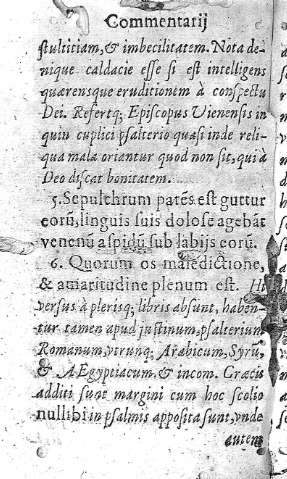 Commentarij
stultitiam, & imbecilitatem. Nota de-
nique caldacie esse si est intelligens
quærensque eruditionem à conspectu
Dei. Refertq; Episcopus Uienensis in
quin cuplici psalterio quasi inde reli-
qua mala oriantur quod non sit, qui à
Deo discat bonitatem.
5. Sepulchrum patẽs est guttur
eorũ, linguis suis dolose agebãt
venenũ aspidũ sub labijs eorũ.
6. Quorum os maledictione,
& amaritudine plenum est. Hi
versus à plerisq; libris absunt, haben-
tur tamen apud justinum, psalterium
Romanum, utrunq; Arabicum, Syrũ,
& AEgyptiacum, & incom. Græcis
additi sunt margini cum hoc scolio
nullibi in psalmis apposita sunt, vnde
autem